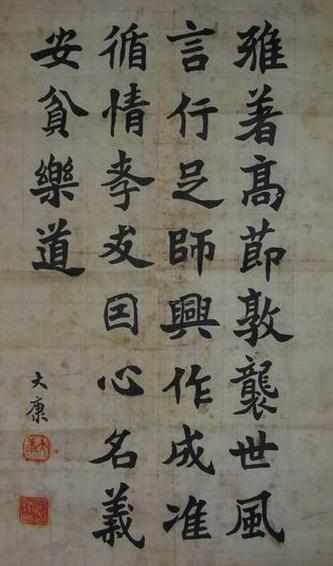 雅著高節敦襲世風
言行足師興作成准
循情孝友因心名義
安貧樂道
大康